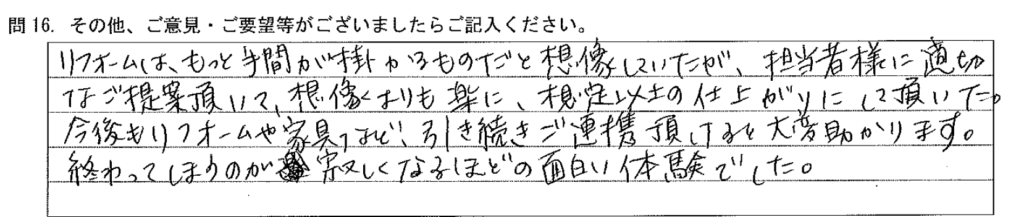 問16. その他、ご意見・ご要望等がございましたらご記入ください。
リフォームは、もっと手間が掛かるものだと想像していたが、担当者様に適切
なご提案頂いて、想像よりも楽に、想定以上の仕上がりにして頂いた。
今後もリフォームや家具など、引き続きご連携頂けると大変助かります。
終わってしまうのが寂しくなるほどの面白い体験でした。